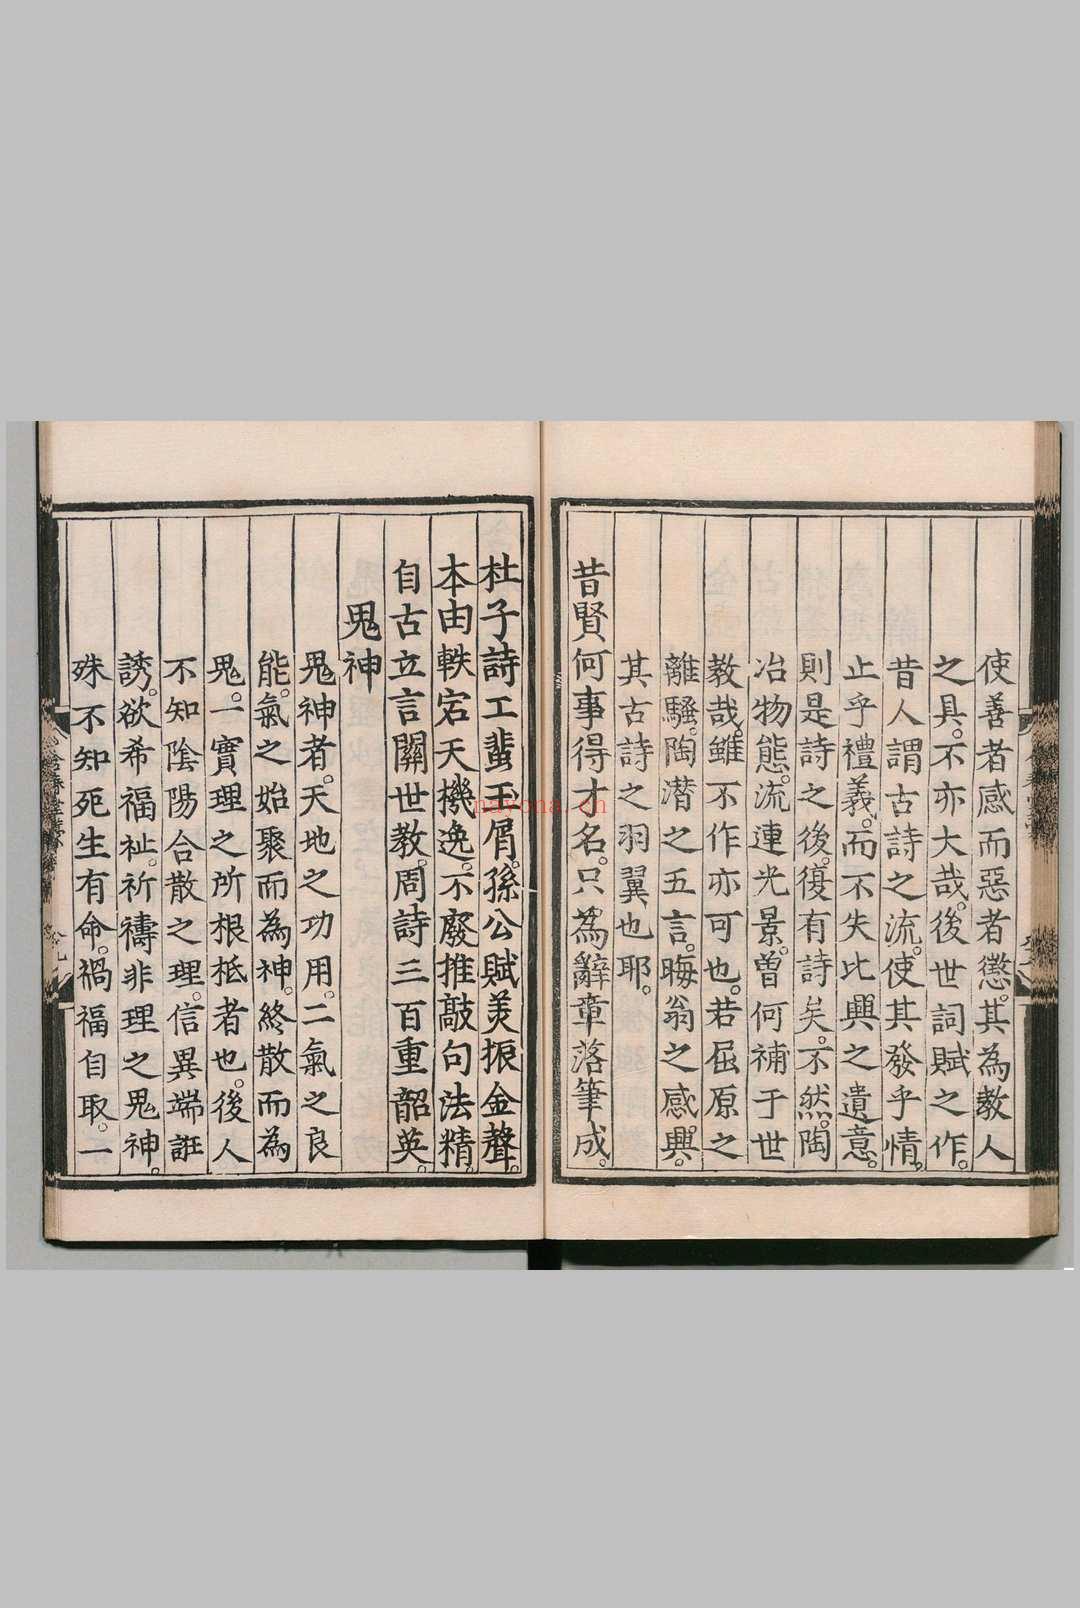 使善者感而惡者懲。其為教人
之具。不亦大哉。後世詞賦之作。
昔人謂古詩之流。使其發乎情。
止乎禮義。而不失比興之遺意。
則是詩之後。復有詩矣。不然。陶
冶物態。流連光景。曾何補于世
教哉。雖不作亦可也。若屈原之
離騷。陶潜之五言。晦翁之感興。
其古詩之羽翼也耶。
昔賢何事得才名。只為辭章落筆成。
杜子詩工蜚玉屑。孫公賦美振金聲。
本由軼宕天機逸。不廢推敲句法精。
自古立言關世教。周詩三百重韶英。
鬼神
鬼神者。天地之功用。二氣之良
能。氣之始聚而為神。終散而為
鬼。一實理之所根柢者也。後人
不知陰陽合散之理。信異端誑
誘。欲希福祉。祈禱非理之鬼神。
殊不知死生有命。禍福自取。二
nayona.cn